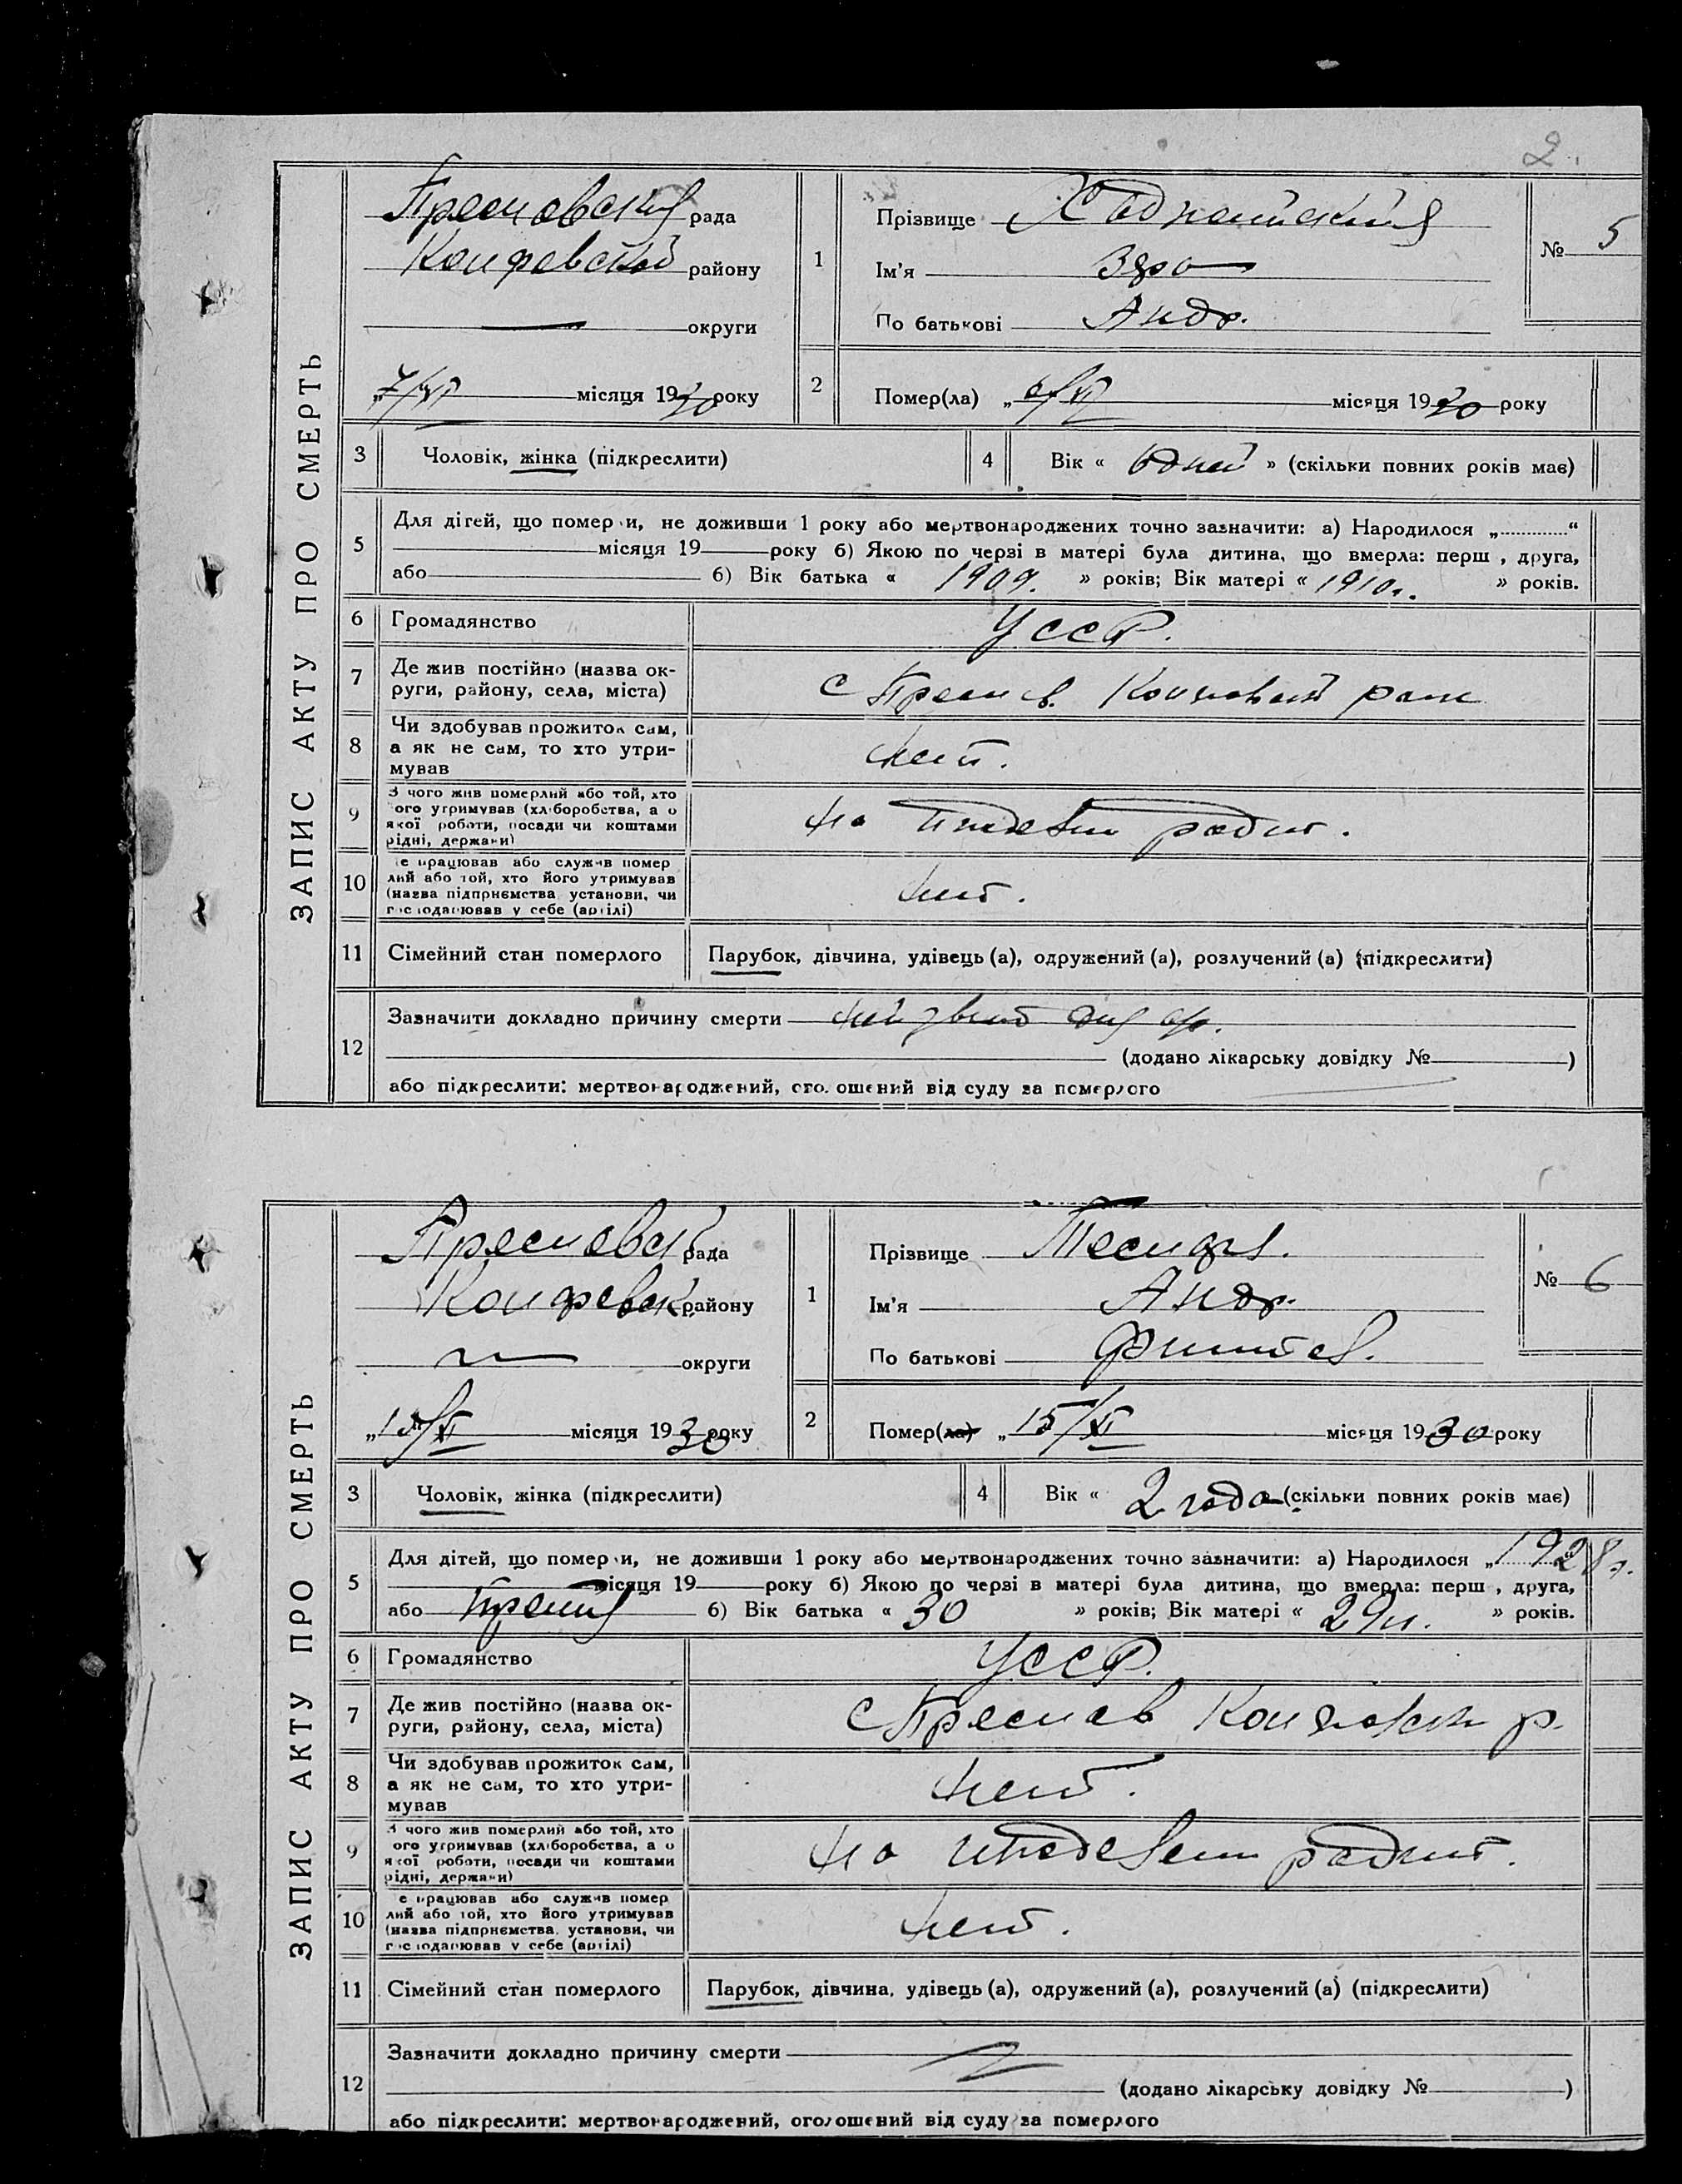 2.
ЗАПИС АКТУ ПРО СМЕРТЬ
рада
району
округи
місяця 1930 року
1
Прізвище
Ім'я
По батькові Андр.
№ 5
2
Помер(ла) місяця 1930 року
3 Чоловік, жінка (підкреслити)
4 Вік « 6 дней » (скільки повних років має)
5
Для дітей, що померли, не доживши 1 року або мертвонароджених точно зазначити: а) Народилося „ “
місяця 19 року б) Якою по черзі в матері була дитина, що вмерла: перш , друга,
або б) Вік батька « 1909. » років; Вік матері « 1910г. » років.
6 Громадянство УССР.
7 Де жив постійно (назва ок-
руги, району, села, міста)
с
8 Чи здобував прожиток сам,
а як не сам, то хто утри-
мував
нет.
9 З чого жив померлий або той, хто
ого утримував (хліборобства, а о
якої роботи, посади чи коштами
рідні, держави)
на иждевен родит.
10 е працював або служив помер
лий або той, хто його утримував
(назва підприємства, установи, чи
господарював у себе (артілі)
нет.
11 Сімейний стан померлого Парубок, дівчина, удівець (а), одружений (а), розлучений (а) (підкреслити)
12
Зазначити докладно причину смерти
(додано лікарську довідку № )
або підкреслити: мертвонароджений, оголошений від суду за померлого
ЗАПИС АКТУ ПРО СМЕРТЬ
рада
району
округи
місяця 1930 року
1
Прізвище
Ім'я Андр.
По батькові
№ 6
2
Помер(ла) „ 15/XI місяця 1930 року
3 Чоловік, жінка (підкреслити)
4 Вік « 2 года (скільки повних років має)
5
Для дітей, що померли, не доживши 1 року або мертвонароджених точно зазначити: а) Народилося „ 1928г.
місяця 19 року б) Якою по черзі в матері була дитина, що вмерла: перш , друга,
або б) Вік батька « 30 » років; Вік матері « 29 » років.
6 Громадянство УССР.
7 Де жив постійно (назва ок-
руги, району, села, міста)
с р.
8 Чи здобував прожиток сам,
а як не сам, то хто утри-
мував
нет.
9 З чого жив померлий або той, хто
ого утримував (хліборобства, а о
якої роботи, посади чи коштами
рідні, держави)
на иждевен родит.
10 е працював або служив помер
лий або той, хто його утримував
(назва підприємства, установи, чи
господарював у себе (артілі)
нет.
11 Сімейний стан померлого Парубок, дівчина, удівець (а), одружений (а), розлучений (а) (підкреслити)
12
Зазначити докладно причину смерти
(додано лікарську довідку № )
або підкреслити: мертвонароджений, оголошений від суду за померлого